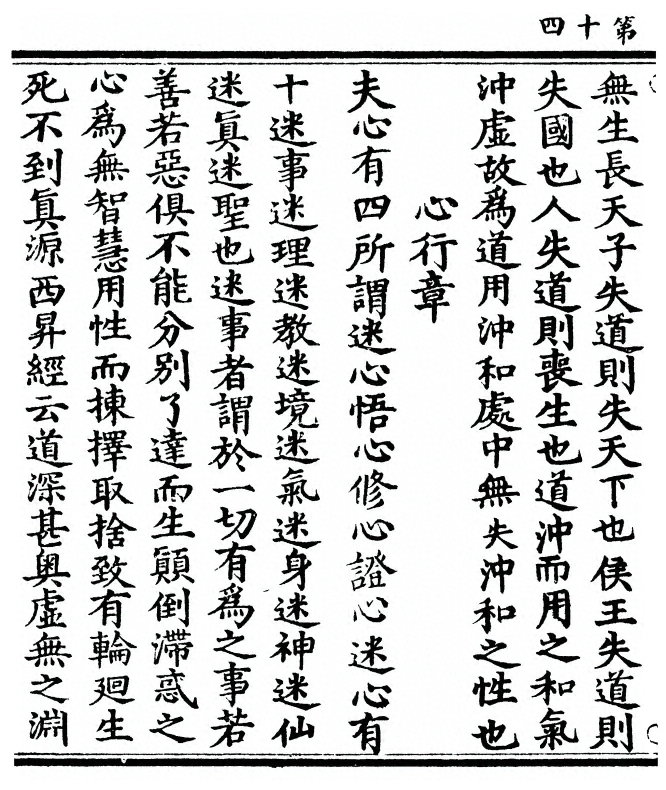 第十四
無生長天子失道則失天下也侯王失道則
失國也人失道則喪生也道沖而用之和氣
沖虛故爲道用沖和處中無失沖和之性也
心行章
夫心有四所謂迷心悟心修心證心迷心有
十迷事迷理迷教迷境迷氣迷身迷神迷仙
迷眞迷聖也迷事者謂於一切有爲之事若
善若惡俱不能分别了達而生顚倒滯惑之
心爲無智慧用性而揀擇取捨致有輪廻生
死不到眞源西昇經云道深甚奥虛無之淵